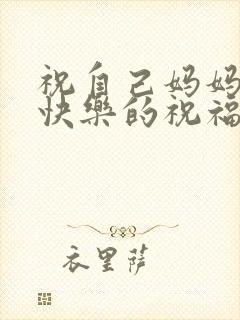 祝自己妈妈
快乐的祝福
衣里萨